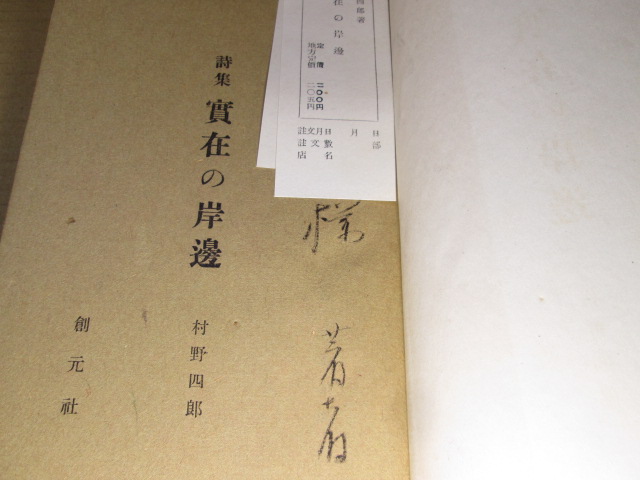 四郎著
在の岸邊
定價 二〇〇円
地方売價 二〇五円
月 日
部
註文月日
註文數
店名
様
著者
詩集 實在の岸邊
村野四郎
創元社